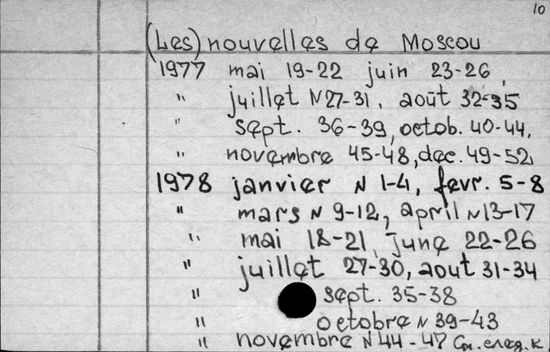 10
(Les) nouvelles de Moscou
1977 mai 19-22 juin 23-26,
" juillet N27-31, août 32-35
" sept. 36-39, octob. 40-44,
" novembre 45-48, dec. 49-52
1978 janvier N 1-4, fevr. 5-8
" mars N 9-12, april N13-17
" mai 18-21, June 22-26
" juillet 27-30, aout 31-34
" sept. 35-38
" octobre N 39-43
" novembre N44-47 См. след. к